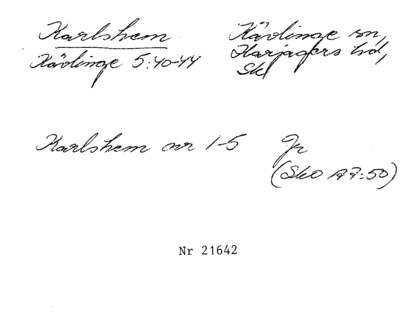 Karlshem
Kävlinge sn,
Kävlinge 5:40-44
Harjagers hd,
Sk
Karlshem nr 1-5 Jr
(SkO A7:50)
Nr 21642